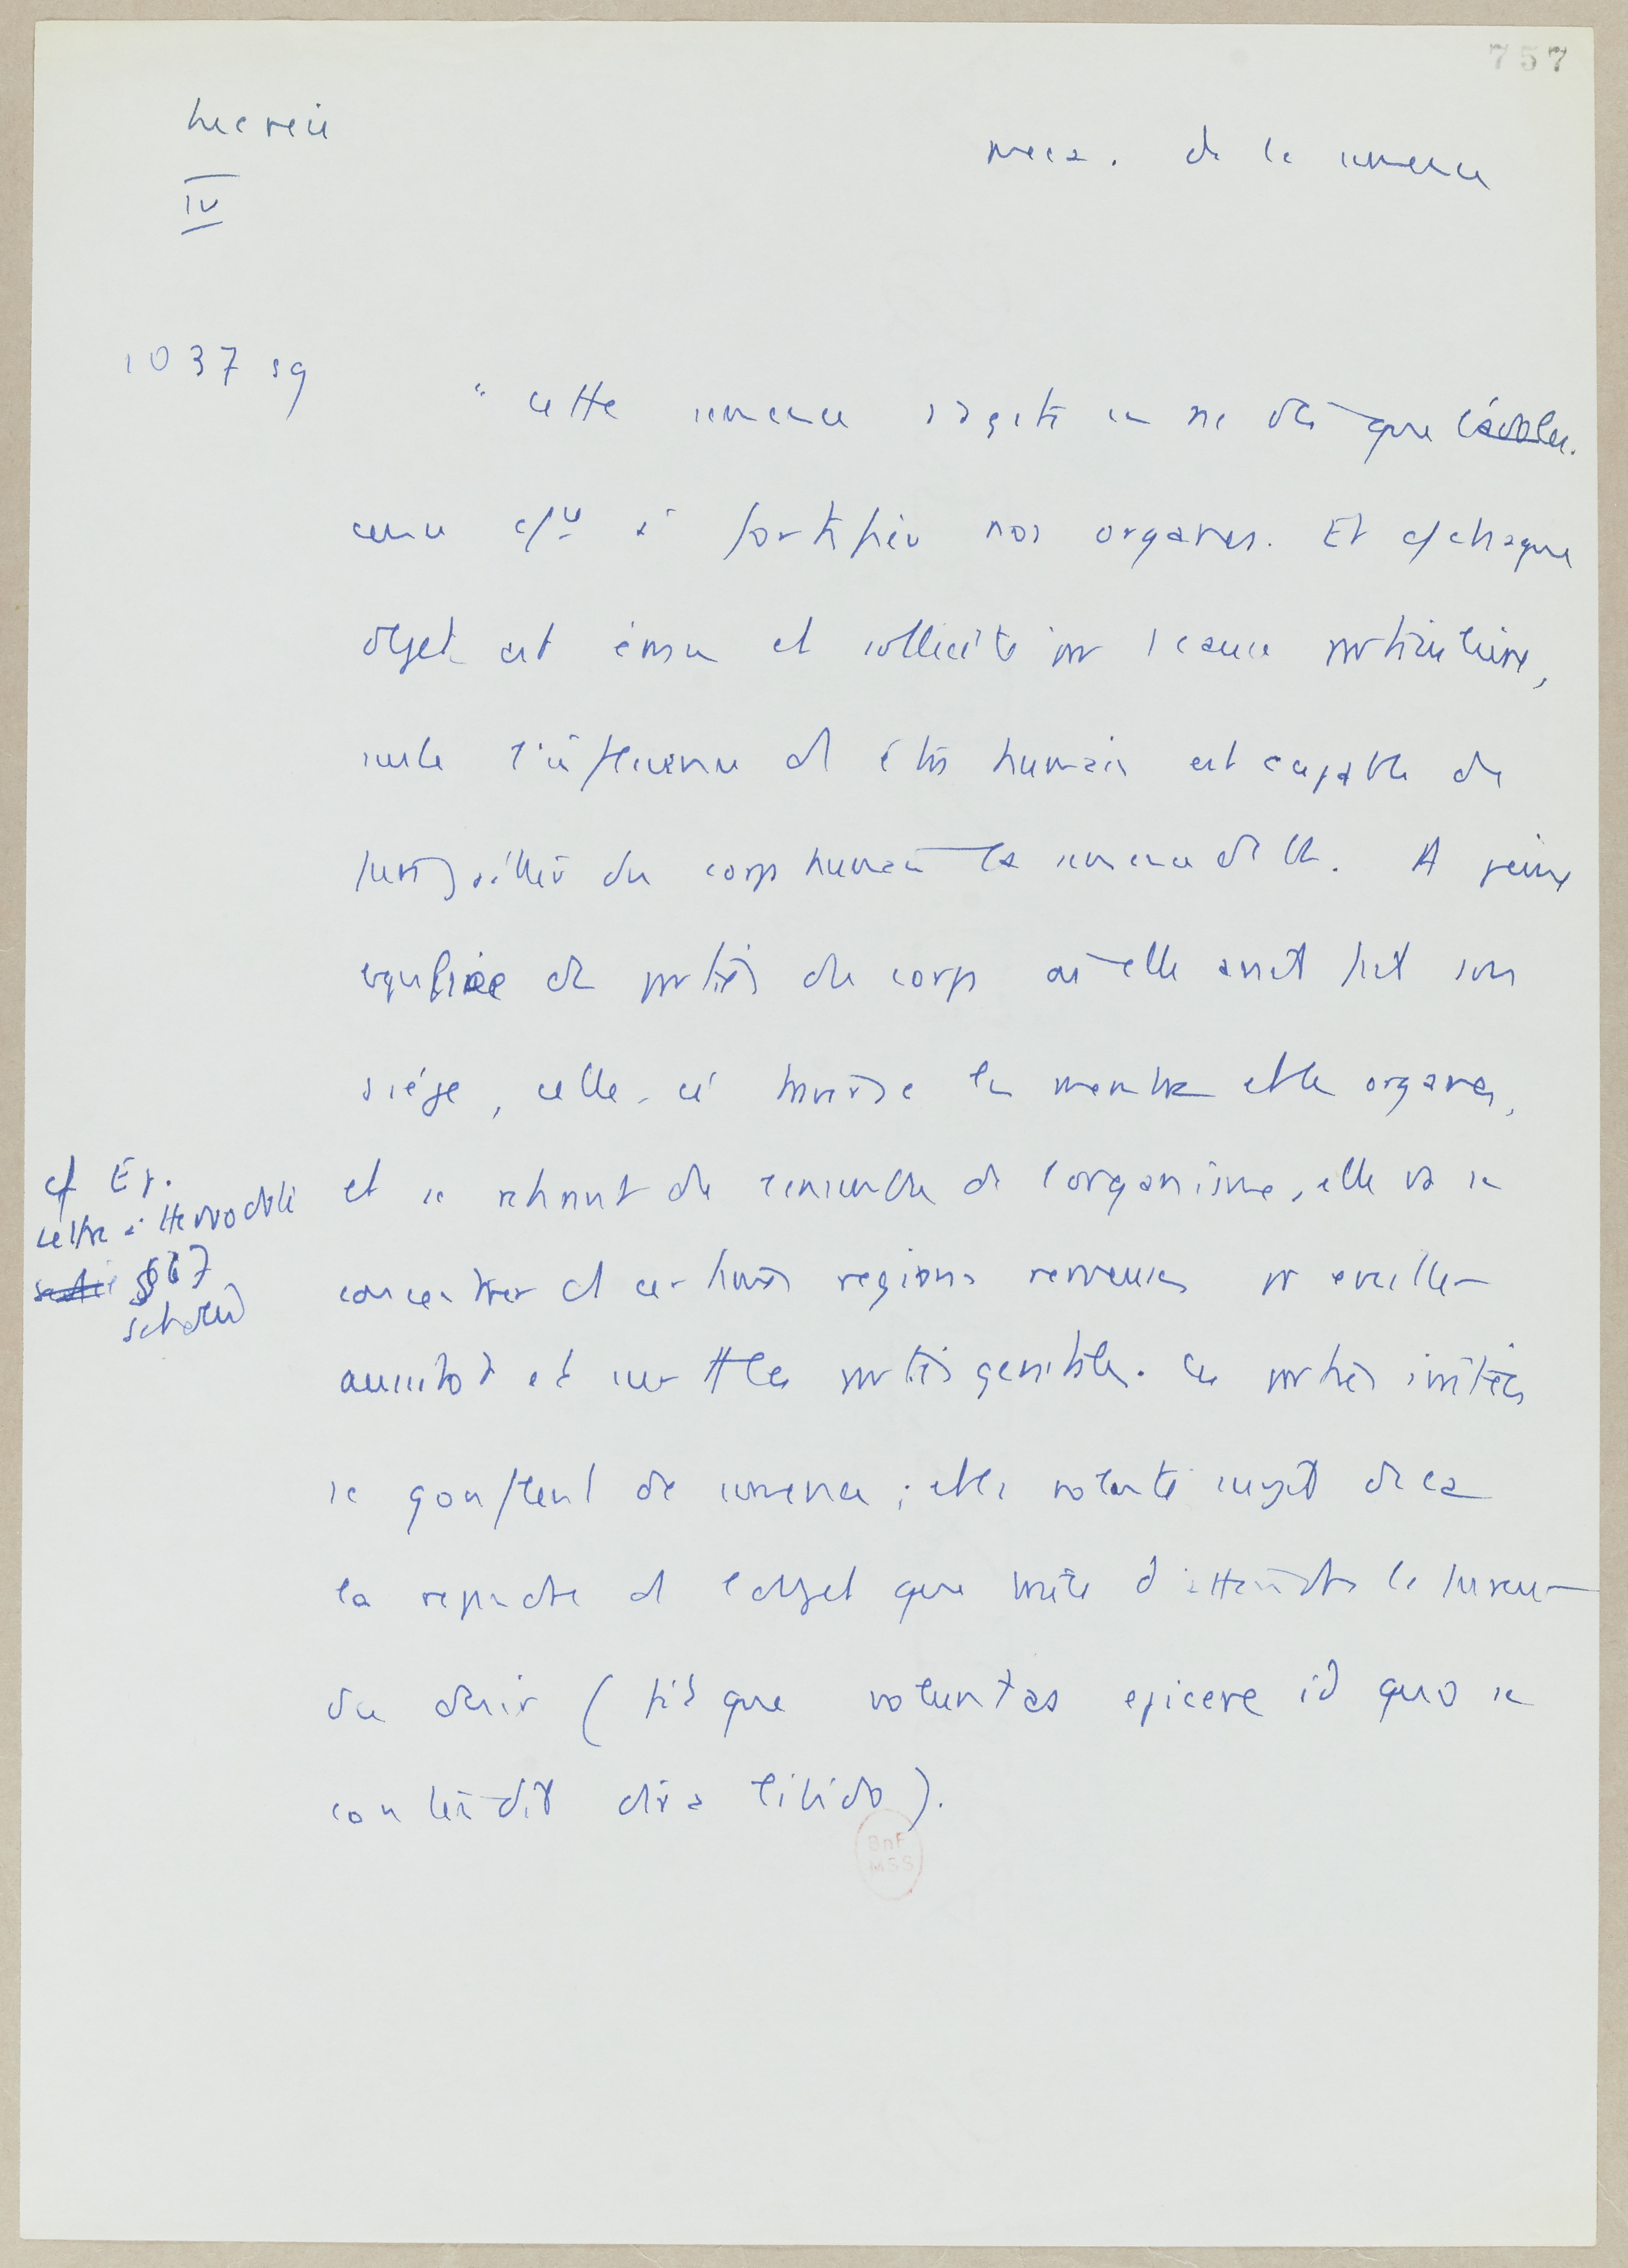 757
Lucrèce
IV
meca. de la semence
1037 sq
" cette semence s'agite en ns dès que l'adoles-
cence c/ce à fortifier nos organes. Et c/ chaque
objet est ému et sollicité par 1 cause particulière,
seule l'influence d'1 être humain est capable de
faire jaillir du corps humain la semence
A peine
expulsée des parties du corps où elle avait fait son
siège, celle-ci traverse les membres et les organes,
et se retirant de l'ensemble de l'organisme, elle va se
concentrer ds certaines régions nerveuses pr eveiller
aussitôt les parties genitales. Ces parties irritées
se gonflent de semence ; et la volonté surgit de la
la repandre ds l'objet que brûle d'atteindre la fureur
du désir ( fitque voluntas eicere id quo se
contendit dira libido ).
cf Ep.
lettre à Herodote
§67
scholie
BnF
MSS